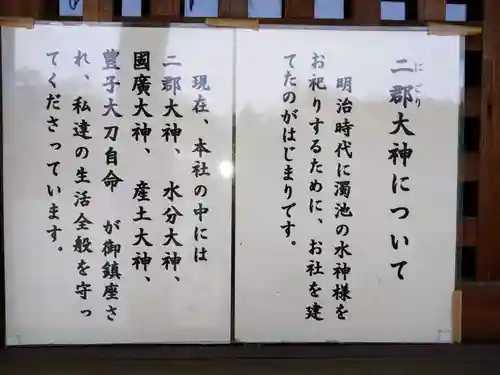 二郡大神について
にごり
明治時代に濁池の水神様を
お祀りするために、お社を建
てたのがはじまりです。
現在、本社の中には
二郡大神、水分大神、
國廣大神、産土大神、
豊子大刀自命 が御鎮座さ
れ、私達の生活全般を守っ
てくださっています。